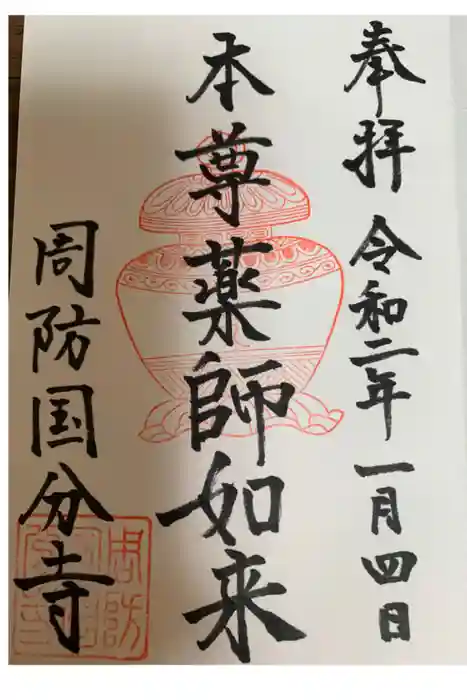 奉拝 令和二年一月四日
本尊薬師如来
周防国分寺